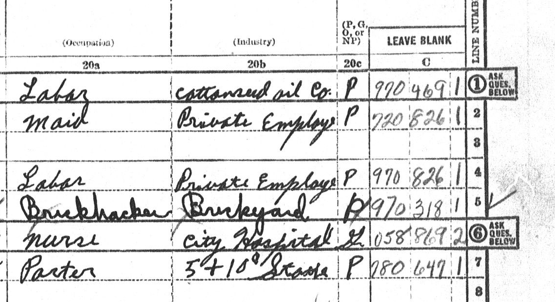 (P, G,
O, or
NP)
(Occupation) (Industry) LEAVE BLANK LINE NUMB
20a 20b 20c C
Labor cottonseed oil Co. P 970 469 1 1 ASK QUES. BELOW
Maid Private Employe P 720 826 1 2
3
Labor Private Employe P 970 826 1 4
Brickhacker Brickyard P 970 318 1 5
nurse City Hospital G 058 869 2 6 ASK QUES. BELOW
Porter 5 + 10¢ Store P 780 647 1 7
8